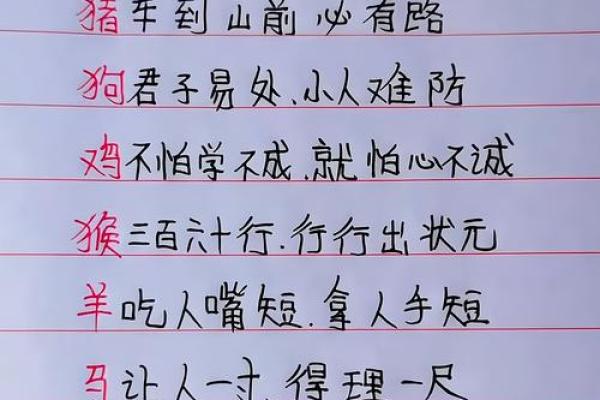 猪车到山前必有路
狗君子易处、小人难防
鸡不怕学不成,就怕心不诚
猴三百六十行.行行出状元
羊吃人嘴短.拿人手短
马让人一寸.得理一尺